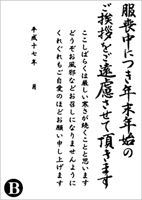 服喪中につき年末年始の
ご挨拶をご遠慮させて頂きます
ここしばらくは厳しい寒さが続くことと思います
どうぞお風邪などお召しになりませんように
くれぐれもご自愛のほどお願い申し上げます
平成十七年 月
B